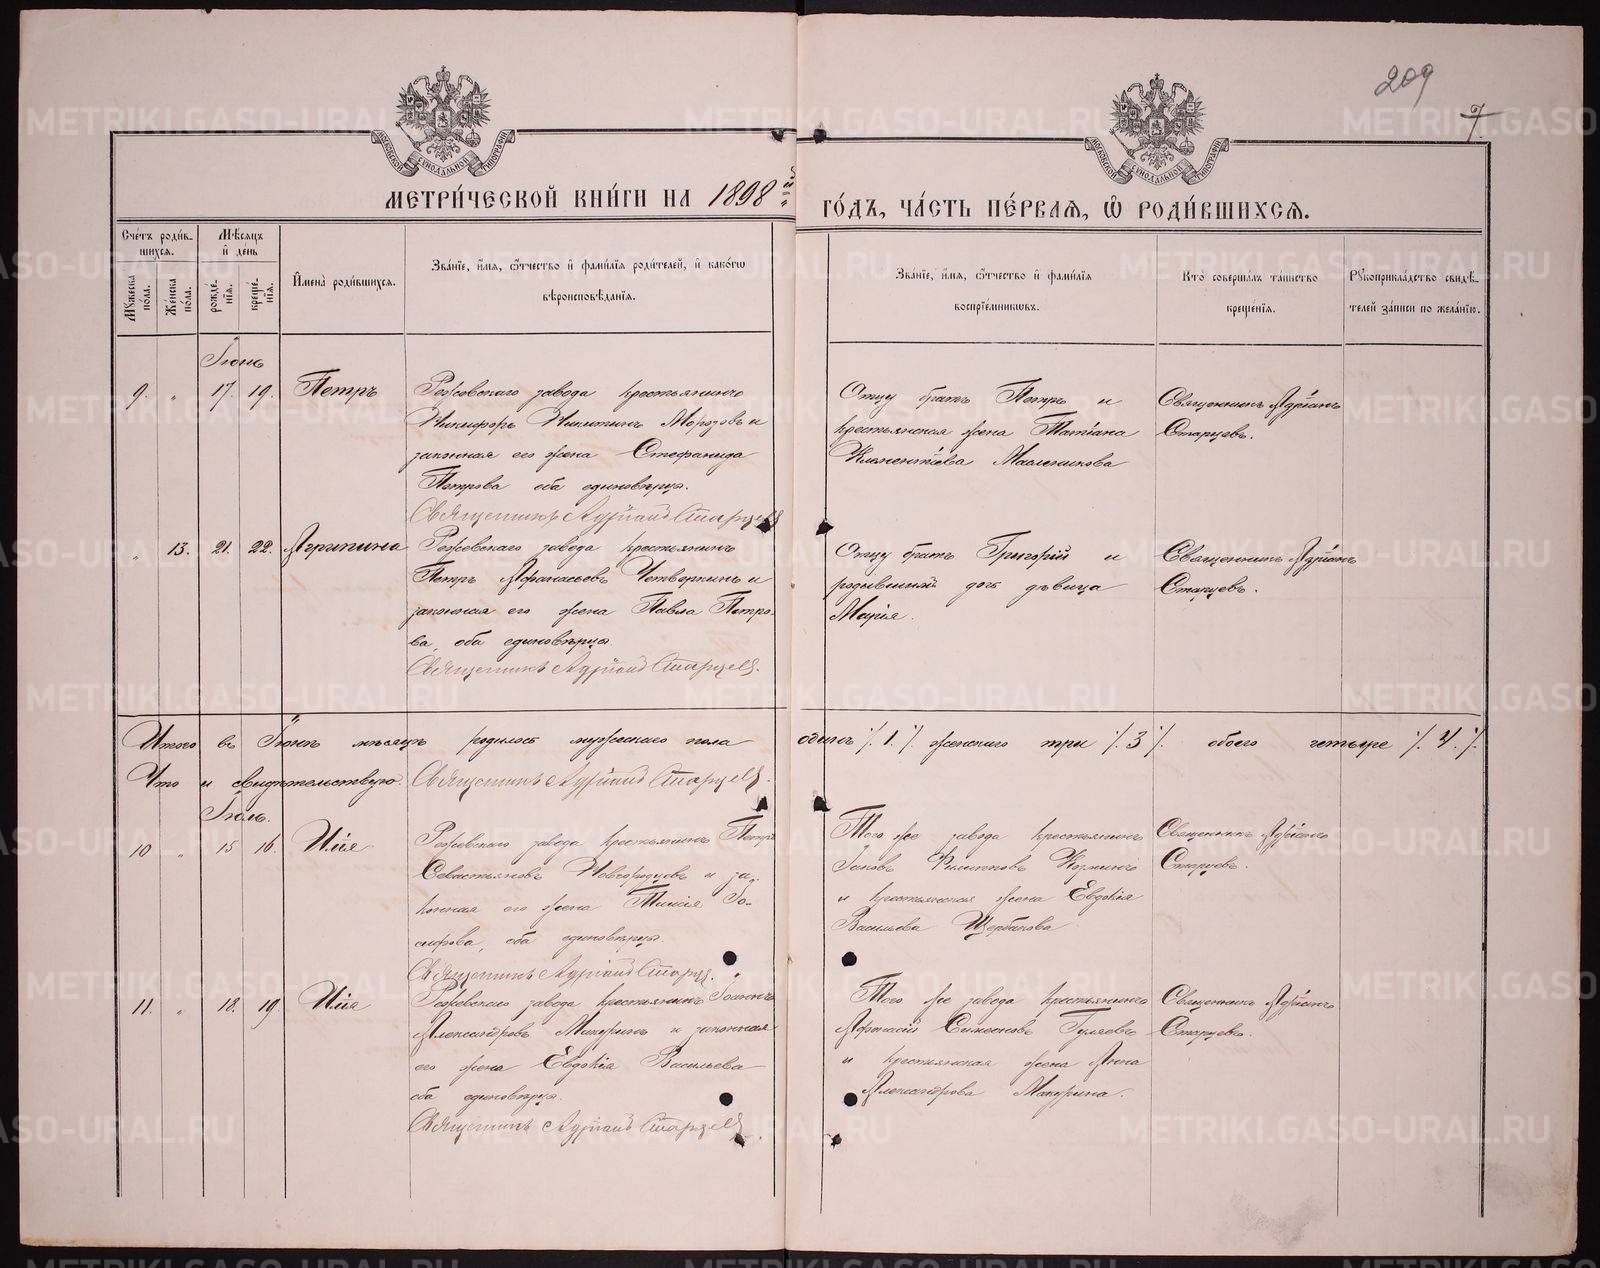 209
7
МЕТРИ́ЧЕСКОЙ КНИ́ГИ НА 1898 й
ГО́ДЪ, ЧА́СТЬ ПЕ́РВАЯ, Ѡ҆ РОДИ́ВШИХСЯ.
Сче́тъ роди́в-
шихся.
Мѣ́сяцъ
и҆ де́нь
Му́жеска по́ла.
Же́нска по́ла.
рожде́-нїя.
креще́-нїя.
И҆мена̀ роди́вшихся.
Зва́нїе, и҆́мя, ѻ҆́тчество и҆ фами́лїя роди́телей, и҆ како́гѡ
вѣроисповѣ́данїя.
Зва́нїе, и҆́мя, ѻ҆́тчество и҆ фами́лїя
воспрїе́мниковъ.
Кто̀ соверша́лъ та́инство
креще́нїя.
Рукоприкла́дство свидѣ́-
телей за́писи по жела́нїю.
Іюнь
9. " 17. 19. Петръ
Режевскаго завода крестьянинъ
Никифоръ Никитинъ Морозовъ и
законная его жена Стефанида
Петрова оба единовѣрцы.
Священникъ Адріанъ Старцевъ
Отцу братъ Петръ и
крестьянская жена Татіана
Климентіева Масленикова
Священникъ Адріанъ
Старцевъ.
" 13. 21. 22. Агрипина
Режевскаго завода крестьянинъ
Петръ Афанасьевъ Четверкинъ и
законная его жена Павла Петро-
ва, оба единовѣрцы.
Священникъ Адріанъ Старцевъ.
Отцу братъ Григорій и
родившей дочь дѣвица
Марія.
Священникъ Адріанъ
Старцевъ.
Итого въ Іюнѣ мѣсяцѣ родилось мужескаго пола одинъ /. 1. /. женскаго три /. 3 /. обоего четыре /. 4. /.
Что и свидѣтельствую. Священникъ Адріанъ Старцевъ.
Іюль.
10 " 15 16. Илія
Режевскаго завода крестьянинъ Петръ
Севастьяновъ Новгородцевъ и за-
конная его жена Таисія Іо-
сифова, оба единовѣрцы.
Священникъ Адріанъ Старцевъ.
Того же завода крестьянинъ
Іаковъ Филипповъ
и крестьянская жена Евдокія
Васильева Щербакова
Священникъ Адріанъ
Старцевъ.
11. " 18. 19. Илія
Режевскаго завода крестьянинъ Іоаннъ
Александровъ Макуринъ и законная
его жена Евдокія Васильева
оба единовѣрцы.
Священникъ Адріанъ Старцевъ.
Того же завода крестьянинъ
Афанасій Симеоновъ Гуляевъ
и крестьянская жена Анна
Александрова Макурина.
Священникъ Адріанъ
Старцевъ.
METRIKI.GASO-URAL.RU